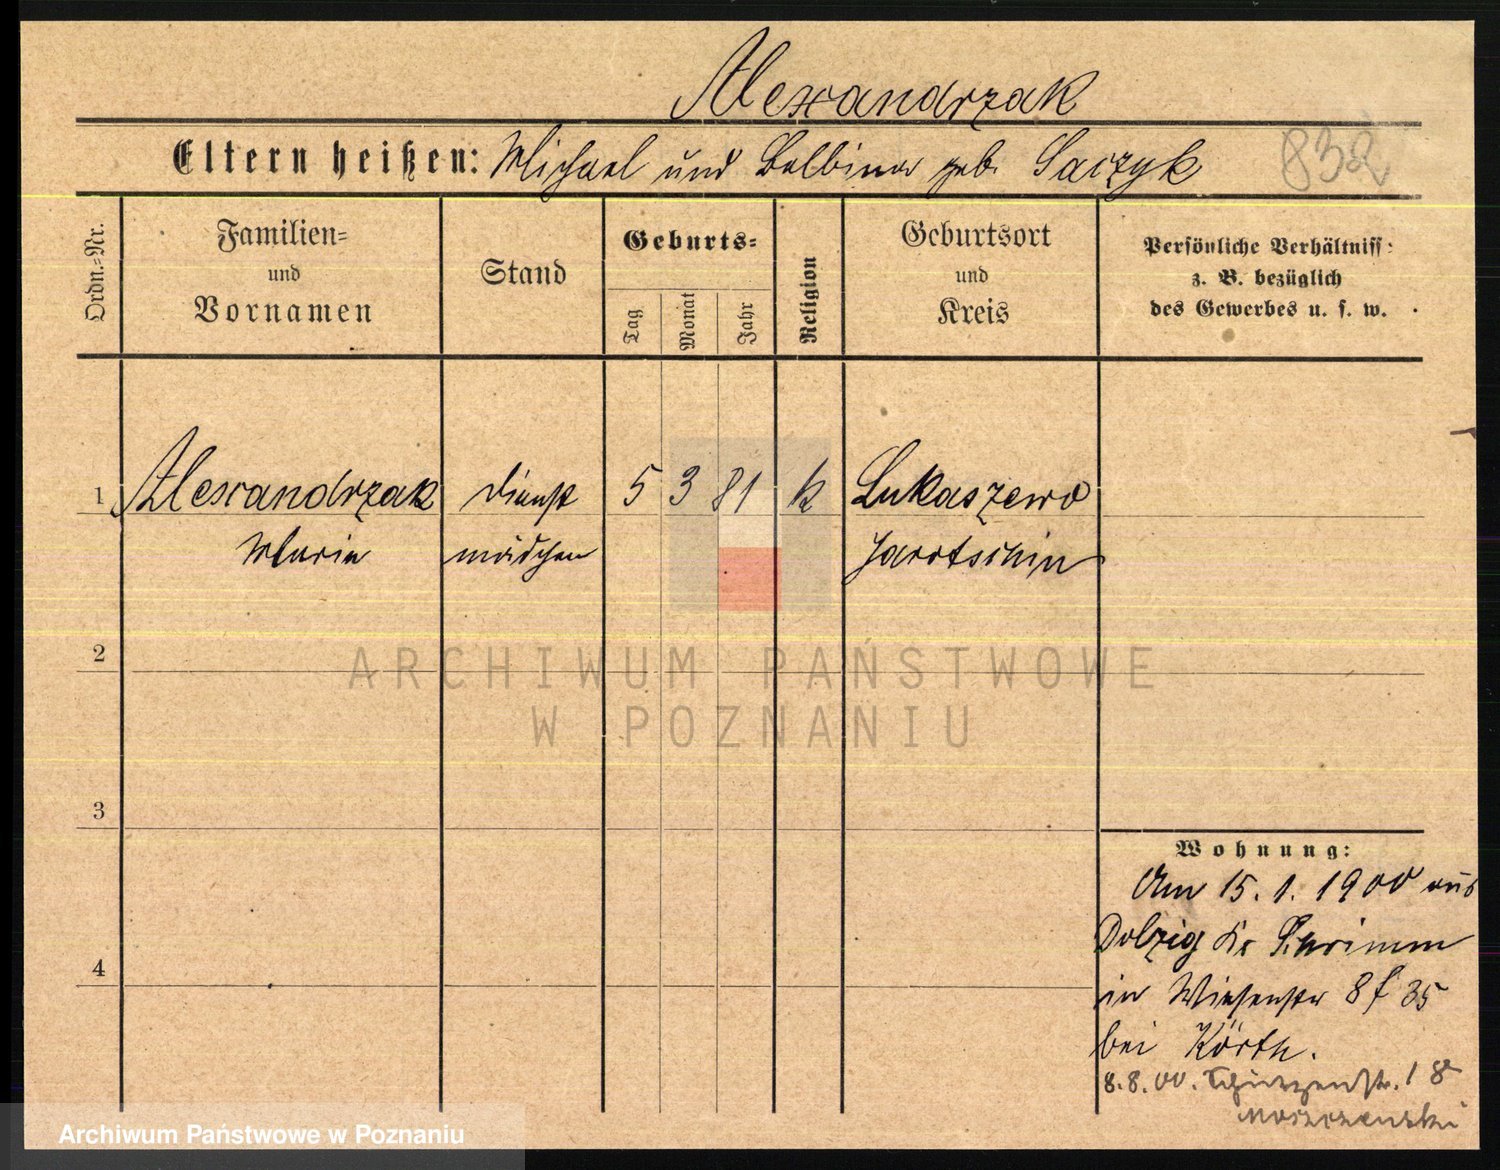 Alexandrzak
832
Eltern heißen: Michael und Balbina geb. Saczyk
Ordn.=Nr.
Familien=
und
Vornamen
Stand
Geburts=
Tag
Monat
Jahr
Religion
Geburtsort
und
Kreis
Persönliche Verhältniss:
z. B. bezüglich
des Gewerbes u. s. w.
1 Alexandrzak Dienst 5 3 81 k Lukaszewo
Maria mädchen Jarotschin
2
3
4
Wohnung:
Am 15.1.1900 aus
Dolzig Kr Schrimm
in Wiesenstr 8 f 35
bei Körth.
8.8.00. Schützenstr. 18
Moszczenski
ARCHIWUM PAŃSTWOWE
W POZNANIU
Archiwum Państwowe w Poznaniu